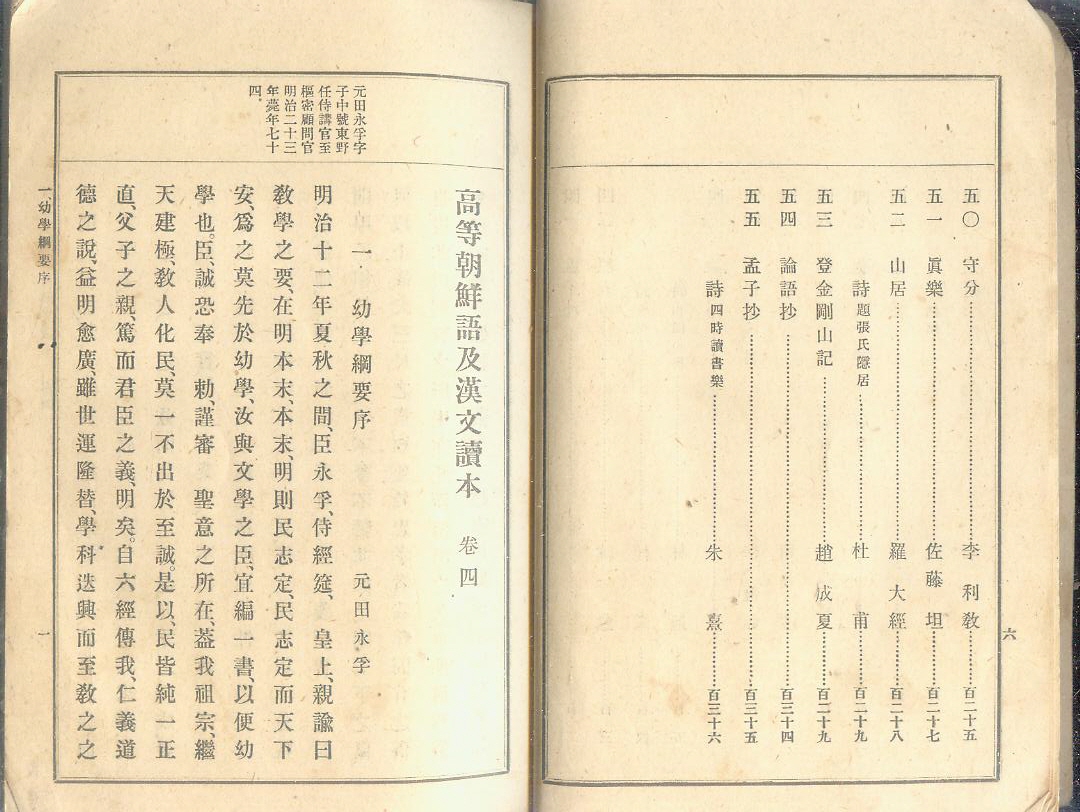 五〇 守分 李利敎 百二十五
五一 眞樂 佐藤坦 百二十七
五二 山居 羅大經 百二十八
詩 題張氏隱居 杜甫 百二十九
五三 登金剛山記 趙成夏 百二十九
五四 論語抄 百三十四
五五 孟子抄 百三十五
詩 四時讀書樂 朱熹 百三十六
六
元田永孚字
子中號東野
任侍講官至
樞密顧問官
明治二十三
年薨年七十
四。
高等朝鮮語及漢文讀本 卷四
一 幼學綱要序 元田永孚
明治十二年夏秋之間、臣永孚、侍經筵、 皇上、親諭曰
敎學之要、在明本末、本末、明則民志定、民志定而天下
安、爲之莫先於幼學、汝與文學之臣、宜編一書、以便幼
學也。臣、誠恐奉 勅、謹審 聖意之所在、蓋我祖宗、繼
天建極、敎人化民、莫一不出於至誠。是以、民皆純一正
直、父子之親、篤而君臣之義、明矣。自六經傳我、仁義道
德之說、益明愈廣、雖世運隆替、學科迭興而至敎之之
一、幼學綱要序
一